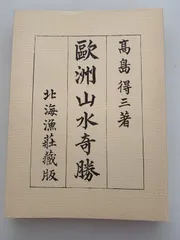 髙島得三著
歐洲山水奇勝
北海漁莊藏版